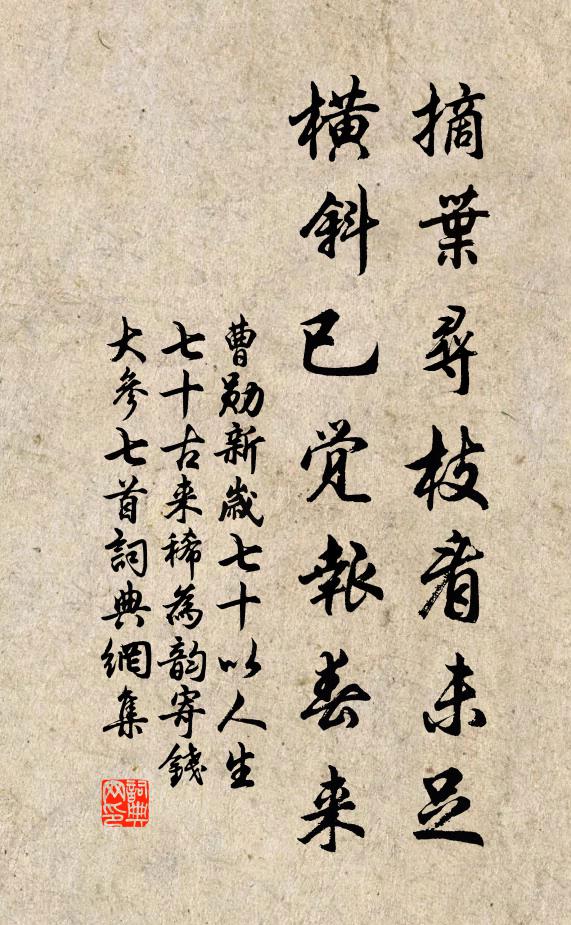 摘葉尋枝看未足
橫斜已覺報春来
曹勛新歲七十以人生
七十古来稀為韵寄錢
大參七首詞典網集
詞典网印